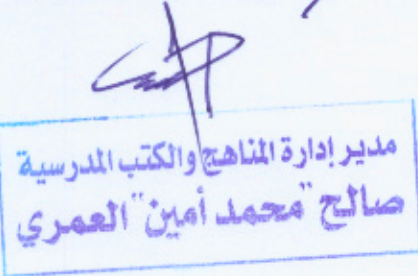 مدير إدارة المناهج والكتب المدرسية
صالح "محمد أمين" العمري